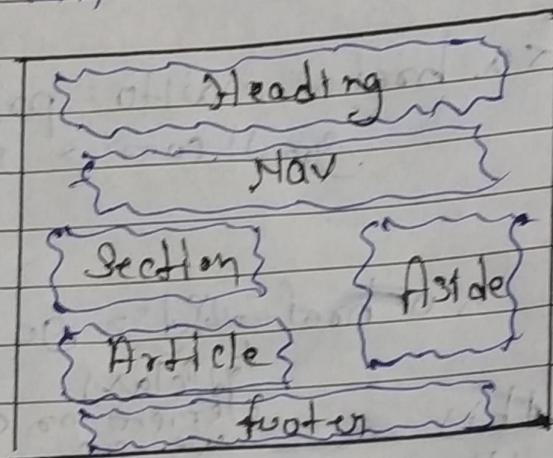 Heading
Nav
Section
Aside
Article
footer